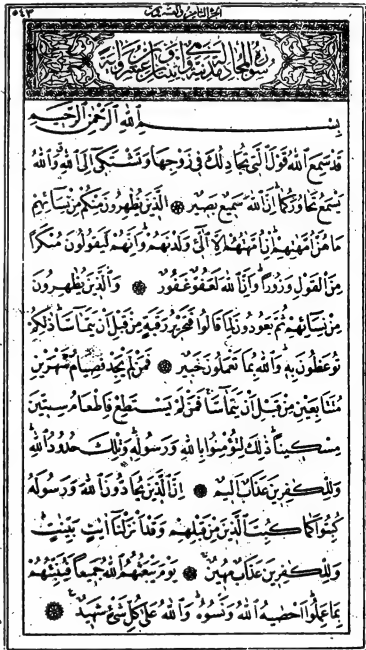 الجزء الثامن والعشرون
٥٤٣
سورة المجادلة مدنية وهى اثنتان وعشرون آية
بِسْمِ اللهِ الرَّحْمٰنِ الرَّحِيمِ
قَدْ سَمِعَ اللهُ قَوْلَ الَّتِى تُجَادِلُكَ فِى زَوْجِهَا وَتَشْتَكِى اِلَى اللهِ وَاللهُ
يَسْمَعُ تَحَاوُرَكُمَا اِنَّ اللهَ سَمِيعٌ بَصِيرٌ ۝ اَلَّذِينَ يُظٰهِرُونَ مِنْكُمْ مِنْ نِسَائِهِمْ
مَا هُنَّ اُمَّهٰتِهِمْ اِنْ اُمَّهٰتُهُمْ اِلَّا الّٰۤئِى وَلَدْنَهُمْ وَاِنَّهُمْ لَيَقُولُونَ مُنْكَرًا
مِنَ الْقَوْلِ وَزُورًا وَاِنَّ اللهَ لَعَفُوٌّ غَفُورٌ ۝ وَالَّذِينَ يُظٰهِرُونَ
مِنْ نِسَائِهِمْ ثُمَّ يَعُودُونَ لِمَا قَالُوا فَتَحْرِيرُ رَقَبَةٍ مِنْ قَبْلِ اَنْ يَتَمَاسَّا ذٰلِكُمْ
تُوعَظُونَ بِهِ وَاللهُ بِمَا تَعْمَلُونَ خَبِيرٌ ۝ فَمَنْ لَمْ يَجِدْ فَصِيَامُ شَهْرَيْنِ
مُتَتَابِعَيْنِ مِنْ قَبْلِ اَنْ يَتَمَاسَّا فَمَنْ لَمْ يَسْتَطِعْ فَاِطْعَامُ سِتِّينَ
مِسْكِينًا ذٰلِكَ لِتُؤْمِنُوا بِاللهِ وَرَسُولِهِ وَتِلْكَ حُدُودُ اللهِ
وَلِلْكٰفِرِينَ عَذَابٌ اَلِيمٌ ۝ اِنَّ الَّذِينَ يُحَادُّونَ اللهَ وَرَسُولَهُ
كُبِتُوا كَمَا كُبِتَ الَّذِينَ مِنْ قَبْلِهِمْ وَقَدْ اَنْزَلْنَا اٰيٰتٍ بَيِّنٰتٍ
وَلِلْكٰفِرِينَ عَذَابٌ مُهِينٌ ۝ يَوْمَ يَبْعَثُهُمُ اللهُ جَمِيعًا فَيُنَبِّئُهُمْ
بِمَا عَمِلُوا اَحْصٰيهُ اللهُ وَنَسُوهُ وَاللهُ عَلٰى كُلِّ شَىْءٍ شَهِيدٌ ۝